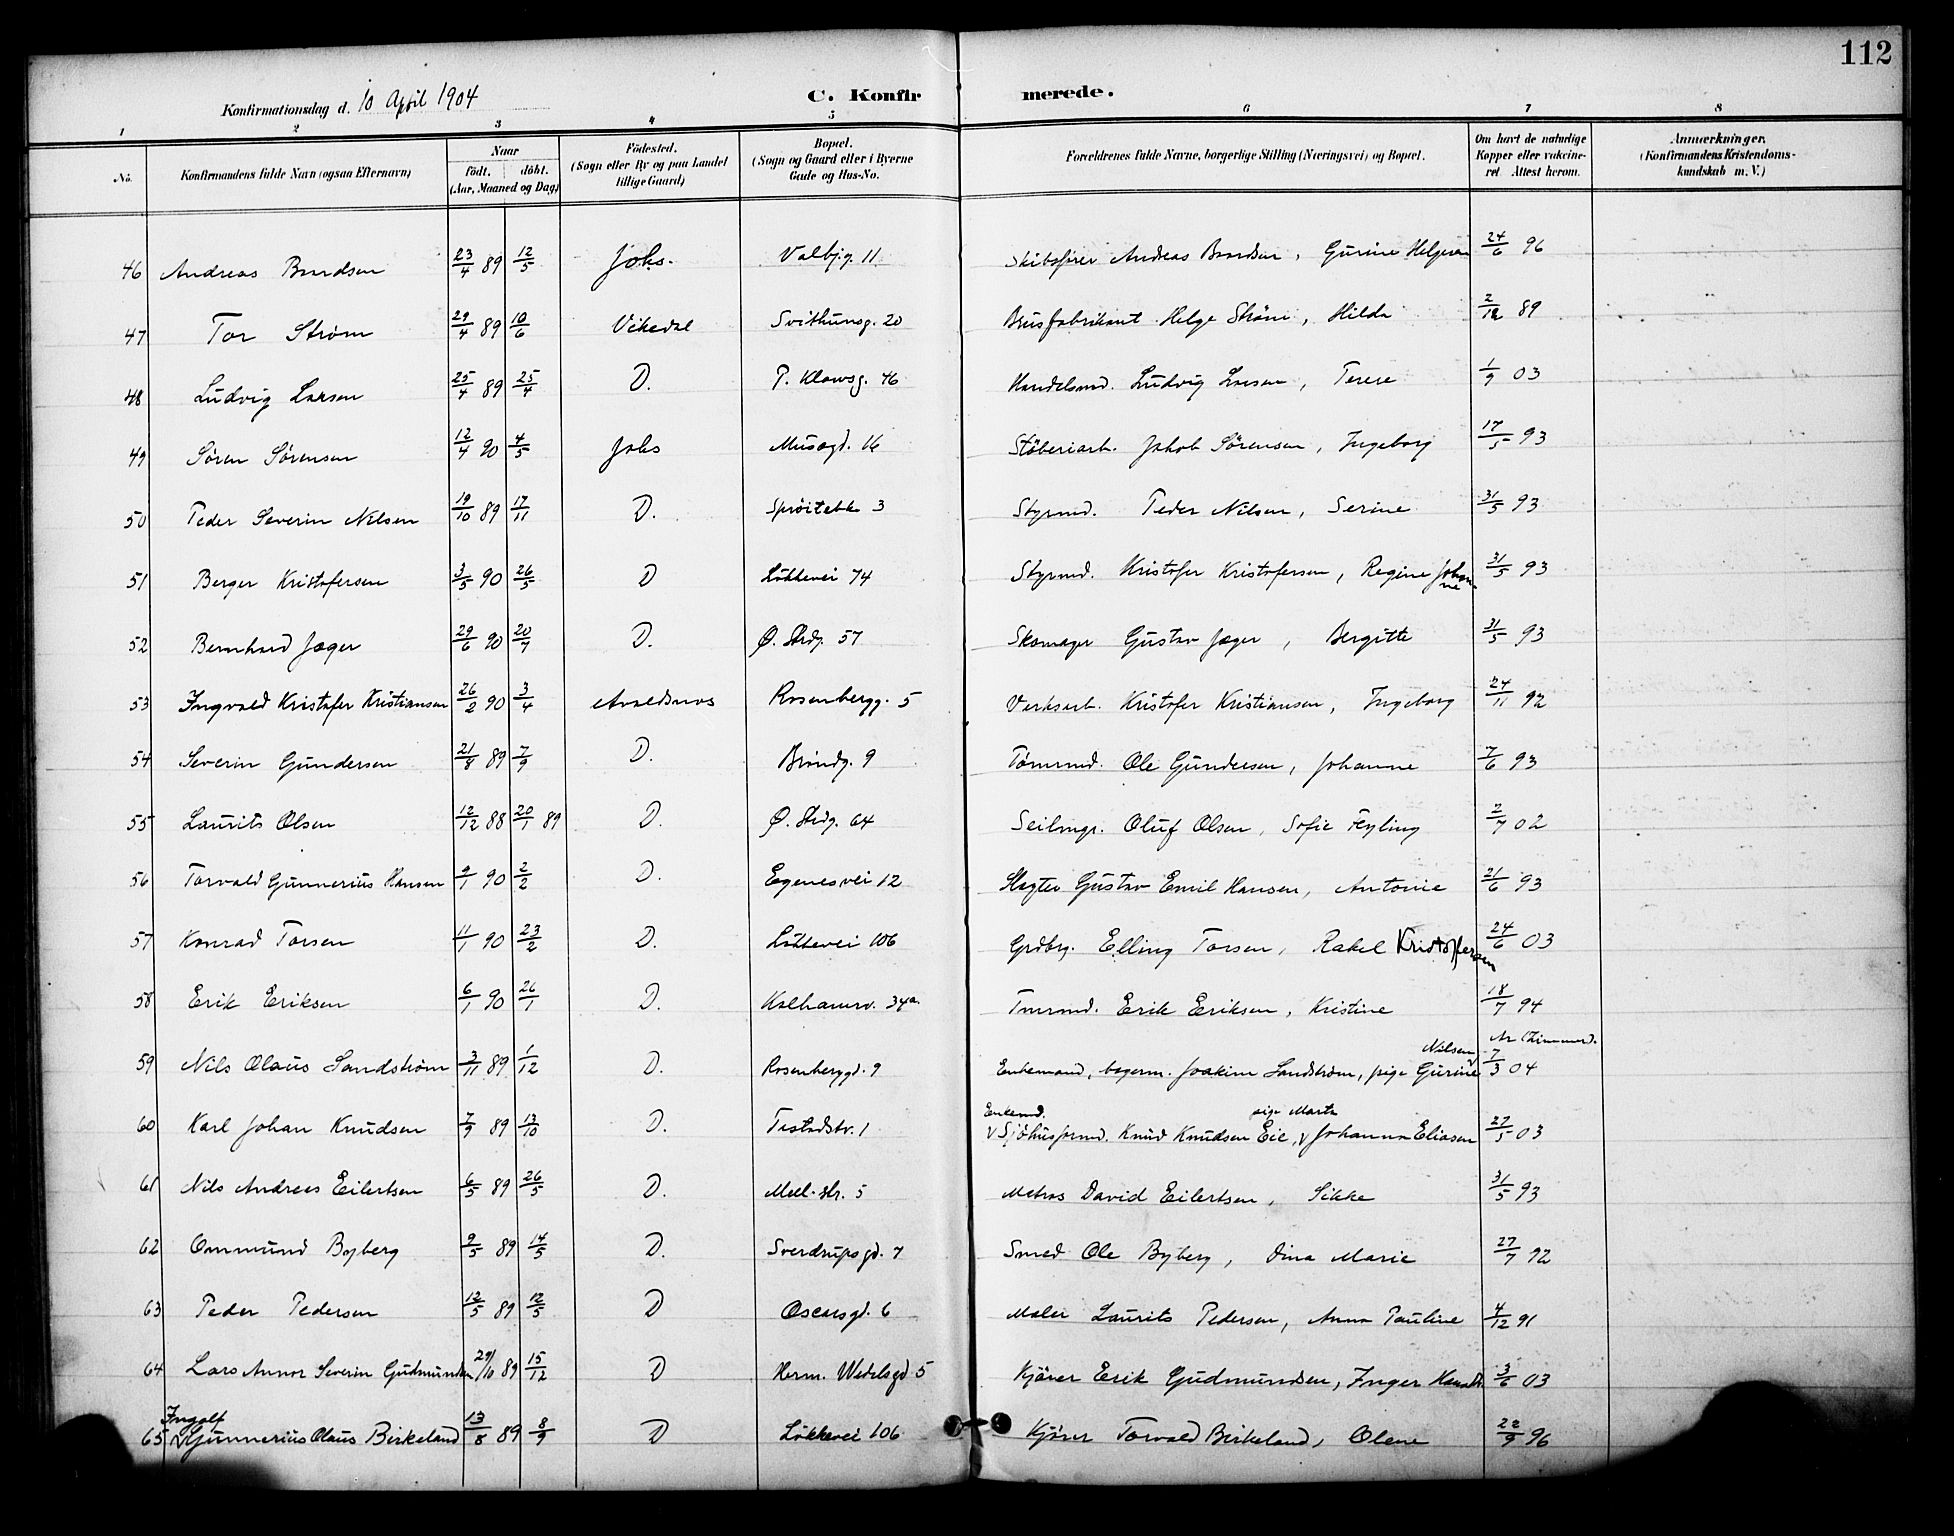 112
Konfirmationsdag d. 10 April 1904
C. Konfir merede.
1 2 3 4 5 6 7 8
No. Konfirmandens fulde Navn (ogsaa Efternavn) Naar födt. döbt. (Aar, Maaned og Dag) Födested. (Sogn eller By og paa Landet tillige Gaard) Bopæl. (Sogn og Gaard eller i Byerne Gade og Hus-No. Forældrenes fulde Navne, borgerlige Stilling (Næringsvei) og Bopæl. Om havt de naturlige Kopper eller vakcineret Attest herom. Anmærkninger. (Konfirmandens Kristendomskundskab m. V.)
46 Andreas Brndsen 23/4 89 12/5 Johs. Valbjg. 11 Skibsfører Andreas Brandsen, Gurine Helgesen 24/6 96
47 Tor Strøm 29/4 89 10/6 Vikedal Svithunsg. 20 Brusfabrikant Helge Strøm, Hilda 2/12 89
48 Ludvig Larsen 25/4 89 25/4 D. P. Klowsg. 46 Handelsmd. Ludvig Larsen, Terese 1/9 03
49 Sören Sörensen 12/4 90 4/5 Johs Musegd. 16 Stöberiarb. Jakob Sörensen, Ingeborg 17/5 93
50 Peder Severin Nilsen 19/10 89 17/11 D. Sprøitebk 3 Styrmd. Peder Nilsen, Serine 31/5 93
51 Berger Kristofersen 3/5 90 26/5 D Lökkevei 74 Styrmd. Kristofer Kristofersen, Regine Johanne 31/5 93
52 Bernhard Jæger 29/6 90 20/7 D. Ø. Strdg. 57 Skomager Gustav Jæger, Bergitte 31/5 93
53 Ingvald Kristofer Kristiansen 26/2 90 3/4 Avaldsnes Rosenbergg. 5 Verksarb. Kristofer Kristiansen, Ingeborg 24/11 92
54 Severin Gundersen 21/8 89 7/9 D. Bröndg. 9 Tömrmd. Ole Gundersen, Johanne 7/6 93
55 Laurits Olsen 12/12 88 20/1 89 D. Ø. Strdg. 64 Seilmgr. Oluf Olsen, Sofie Feyling 2/7 02
56 Torvald Gunnerius Hansen 9/1 90 2/2 D. Egenesvei 12 Slagter Gustav Emil Hansen, Antonie 21/6 93
57 Konrad Torsen 11/1 90 23/2 D. Lökkevei 106 Grdbrg. Elling Torsen, Rakel Kristoffersen 24/6 03
58 Erik Eriksen 6/1 90 26/1 D. Kalhamrv. 34a. Tmrmd. Erik Eriksen, Kristine 18/7 94
59 Nils Olaus Sandström 3/11 89 1/12 D. Rosenberggd. 9 Enkemand, bagerm. Joakim Sandström, pige Gurine Nilsen 7/3 04
60 Karl Johan Knudsen 7/9 89 13/10 D. Tastadstv. 1 Enkemd. Sjöhusfrmd. Knud Knudsen Eie, pige Marta Johanna Eliasen 27/5 03
61 Nils Andreas Eilertsen 6/5 89 26/5 D. Mell. str. 5 Matros David Eilertsen, Sikke 31/5 93
62 Ommund Byberg 9/5 89 14/5 D. Sverdrupsgd. 7 Smed Ole Byberg, Dina Marie 27/7 92
63 Peder Pedersen 12/5 89 12/5 D Oscarsgd. 6 Maler Laurits Pedersen, Anna Pauline 4/12 91
64 Lars Annor Severin Gudmundsen 29/10 89 15/12 D Herm. Wedelsgd 5 Kjörer Erik Gudmundsen, Inger 3/6 03
65 Ingolf Gunnerius Olaus Birkeland 13/8 89 8/9 D Lökkevei 106 Kjörer Torvald Birkeland, Olene 22/9 96